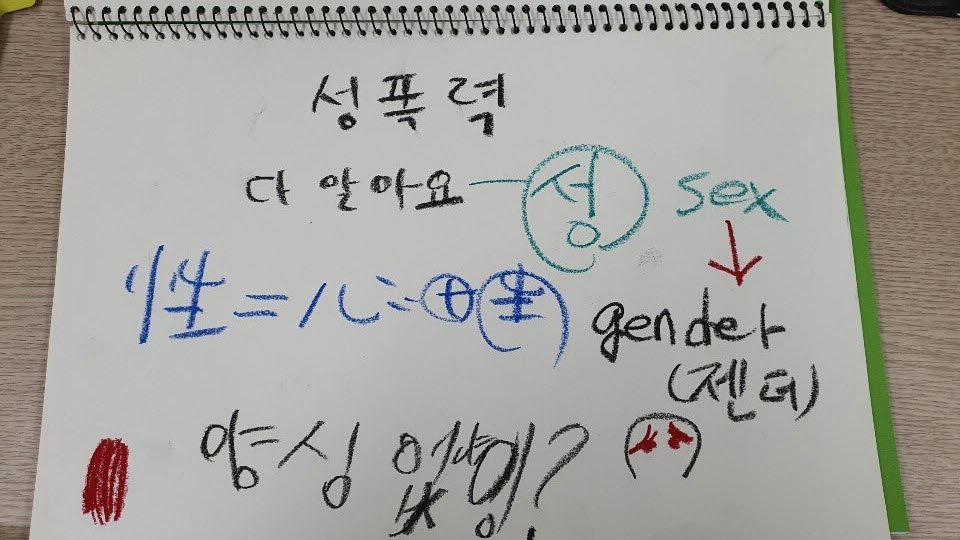 성폭력
다 알아요 성 sex
性 = 心 + 生 gender
(젠더)
양심 ?